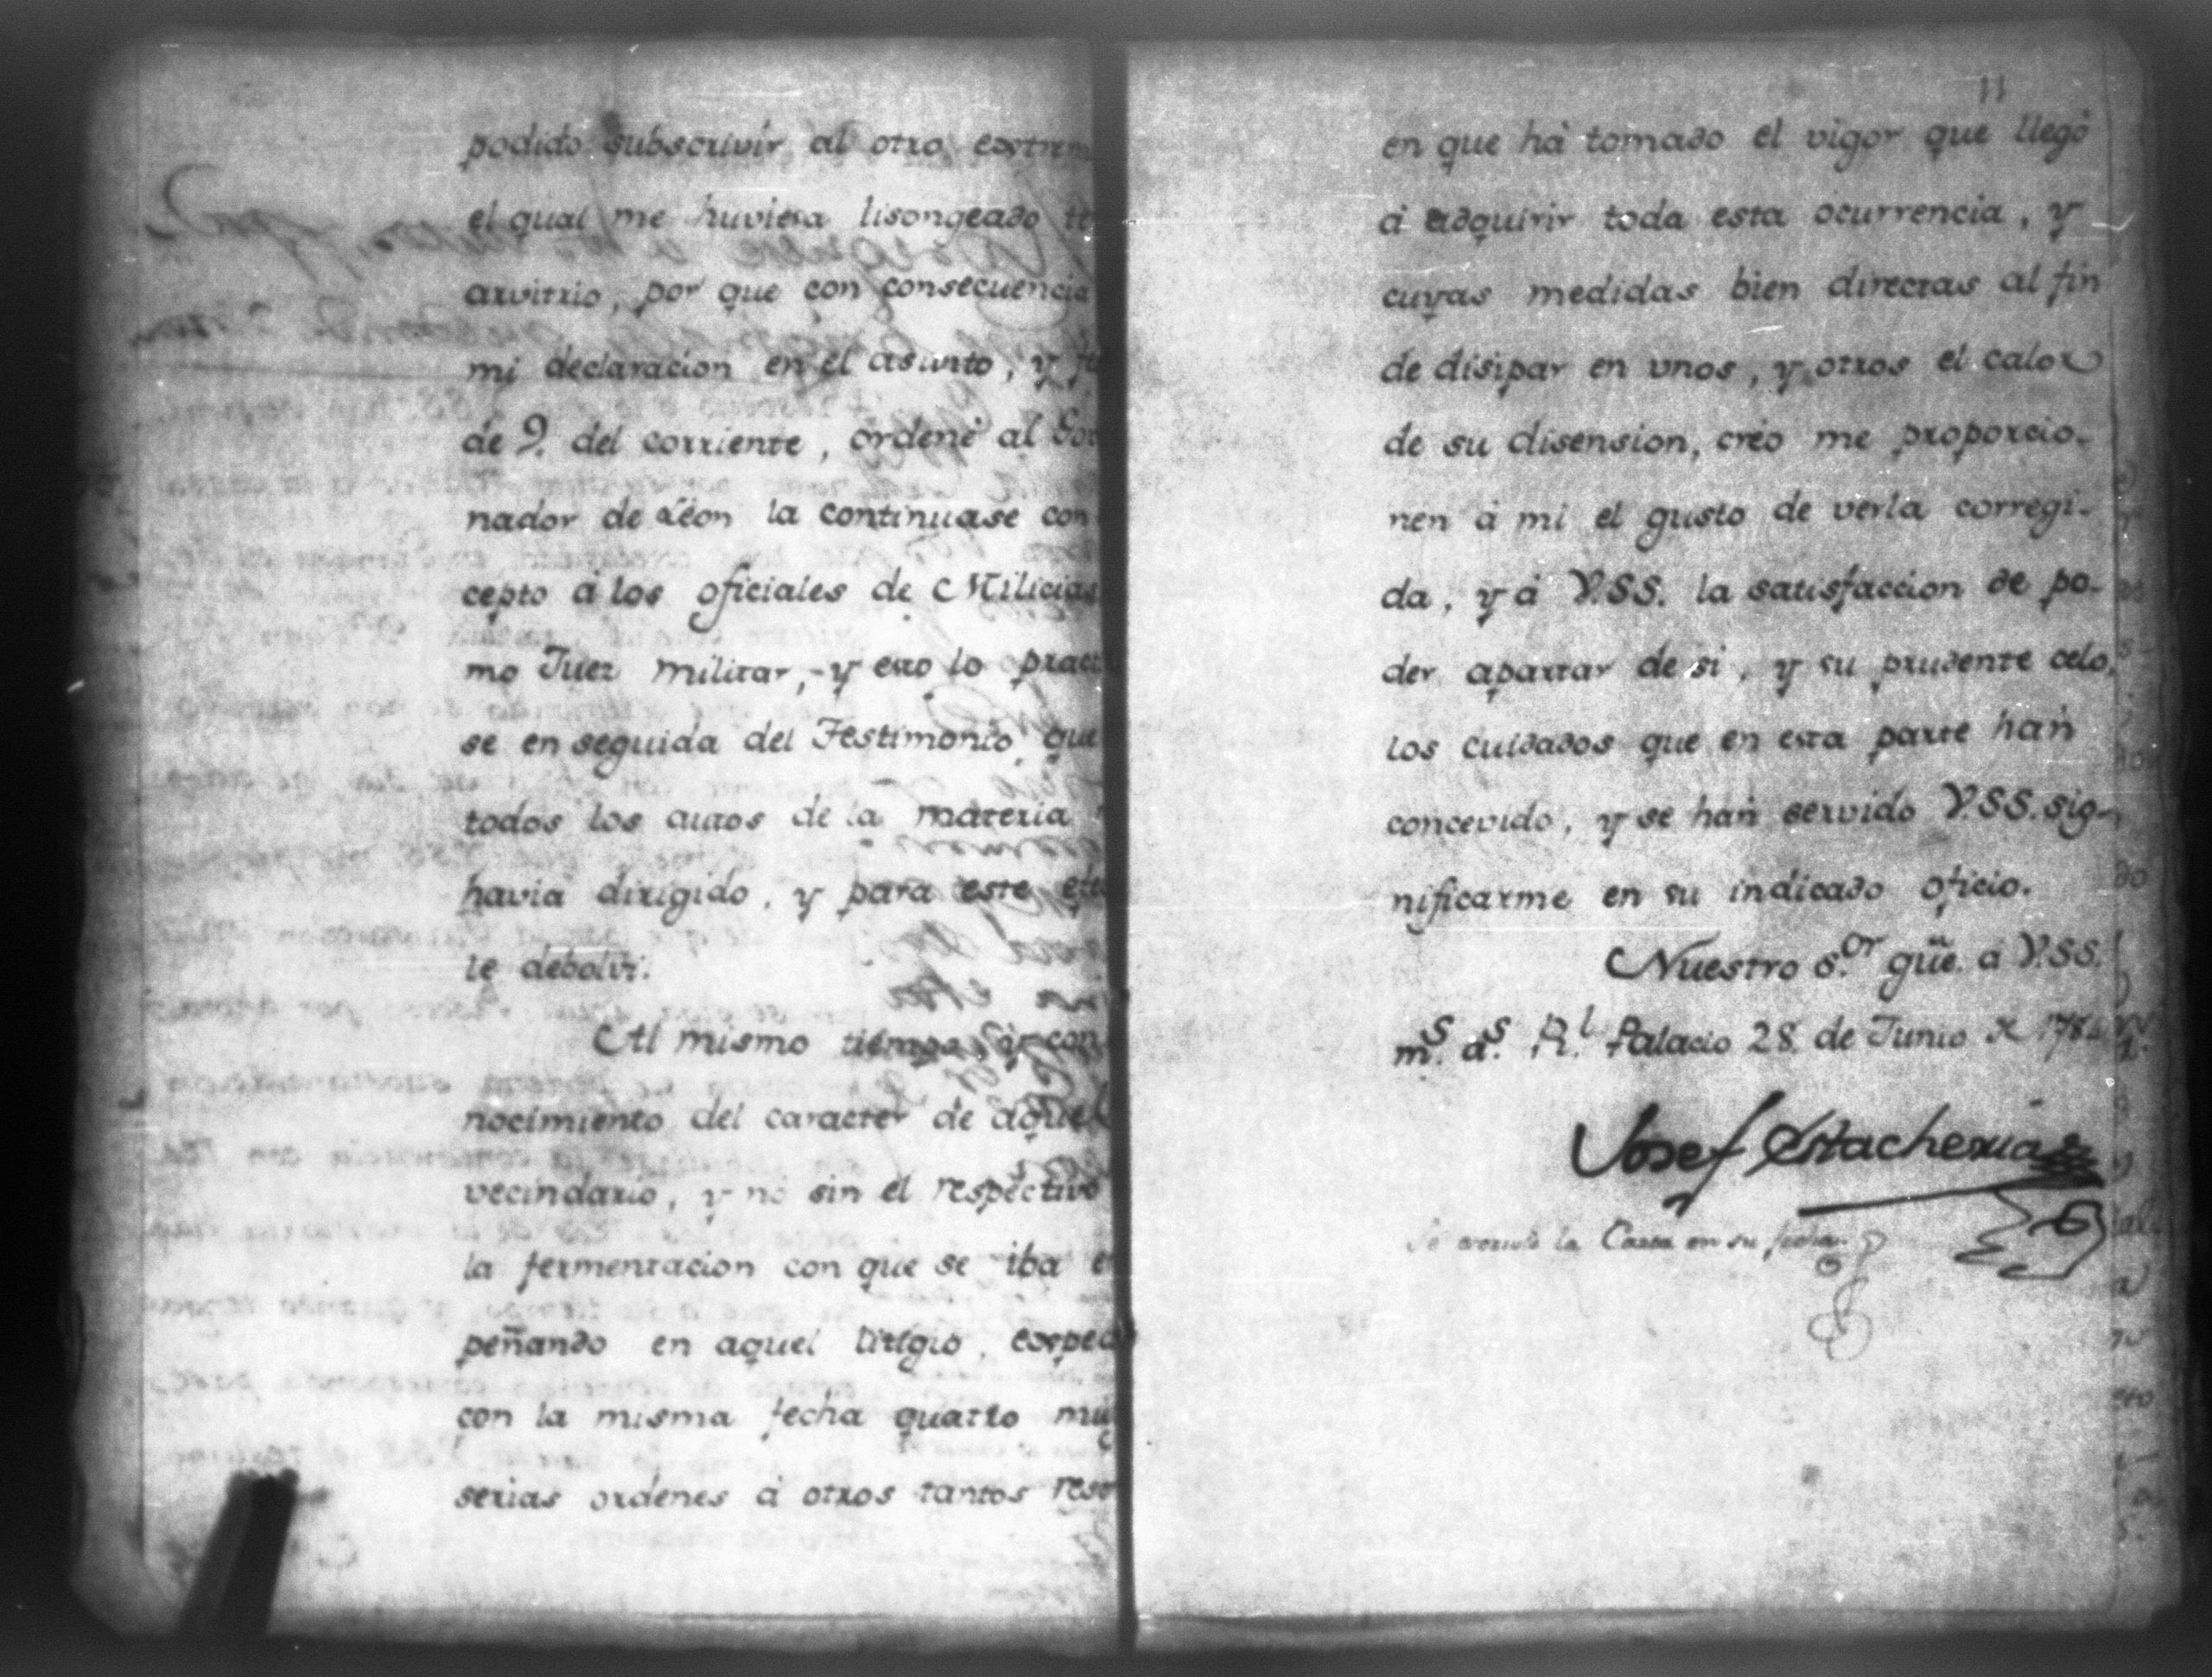 podido subscrivir al otro extrem
el qual me huviera lisongeado
arvitrio, por que con consecuencia
mi declaracion en el asunto, y
de 9. del corriente, ordené al Gov
nador de Léon la continuase con
cepto á los oficiales de Milicias
mo Juez militar, y esto lo pract
se en seguida del Testimonio que
todos los autos de la materia
havia dirigido, y para este efe
le debolvi.
Al mismo tiempo, y con
nocimiento del caracter de aquel
vecindario, y no sin el respectivo
la fermentacion con que se iba e
peñando en aquel litigio, exped
con la misma fecha quatro mu
serias ordenes á otros tantos
11
en que há tomado el vigor que llegó
á adquirir toda esta ocurrencia, y
cuyas medidas bien directas al fin
de disipar en unos, y otros el calor
de su disension, créo me proporcio-
nen á mi el gusto de verla corregi-
da, y á V.SS. la satisfaccion de po-
der apartar de si, y su prudente celo,
los cuidados que en esta parte hán
concevido, y se hán servido V.SS. sig-
nificarme en su indicado oficio.
Nuestro S.or gũe. a V.SS.
m.s a.s R.l Palacio 28. de Junio
Josef Estacheria
la Carta en su fecha